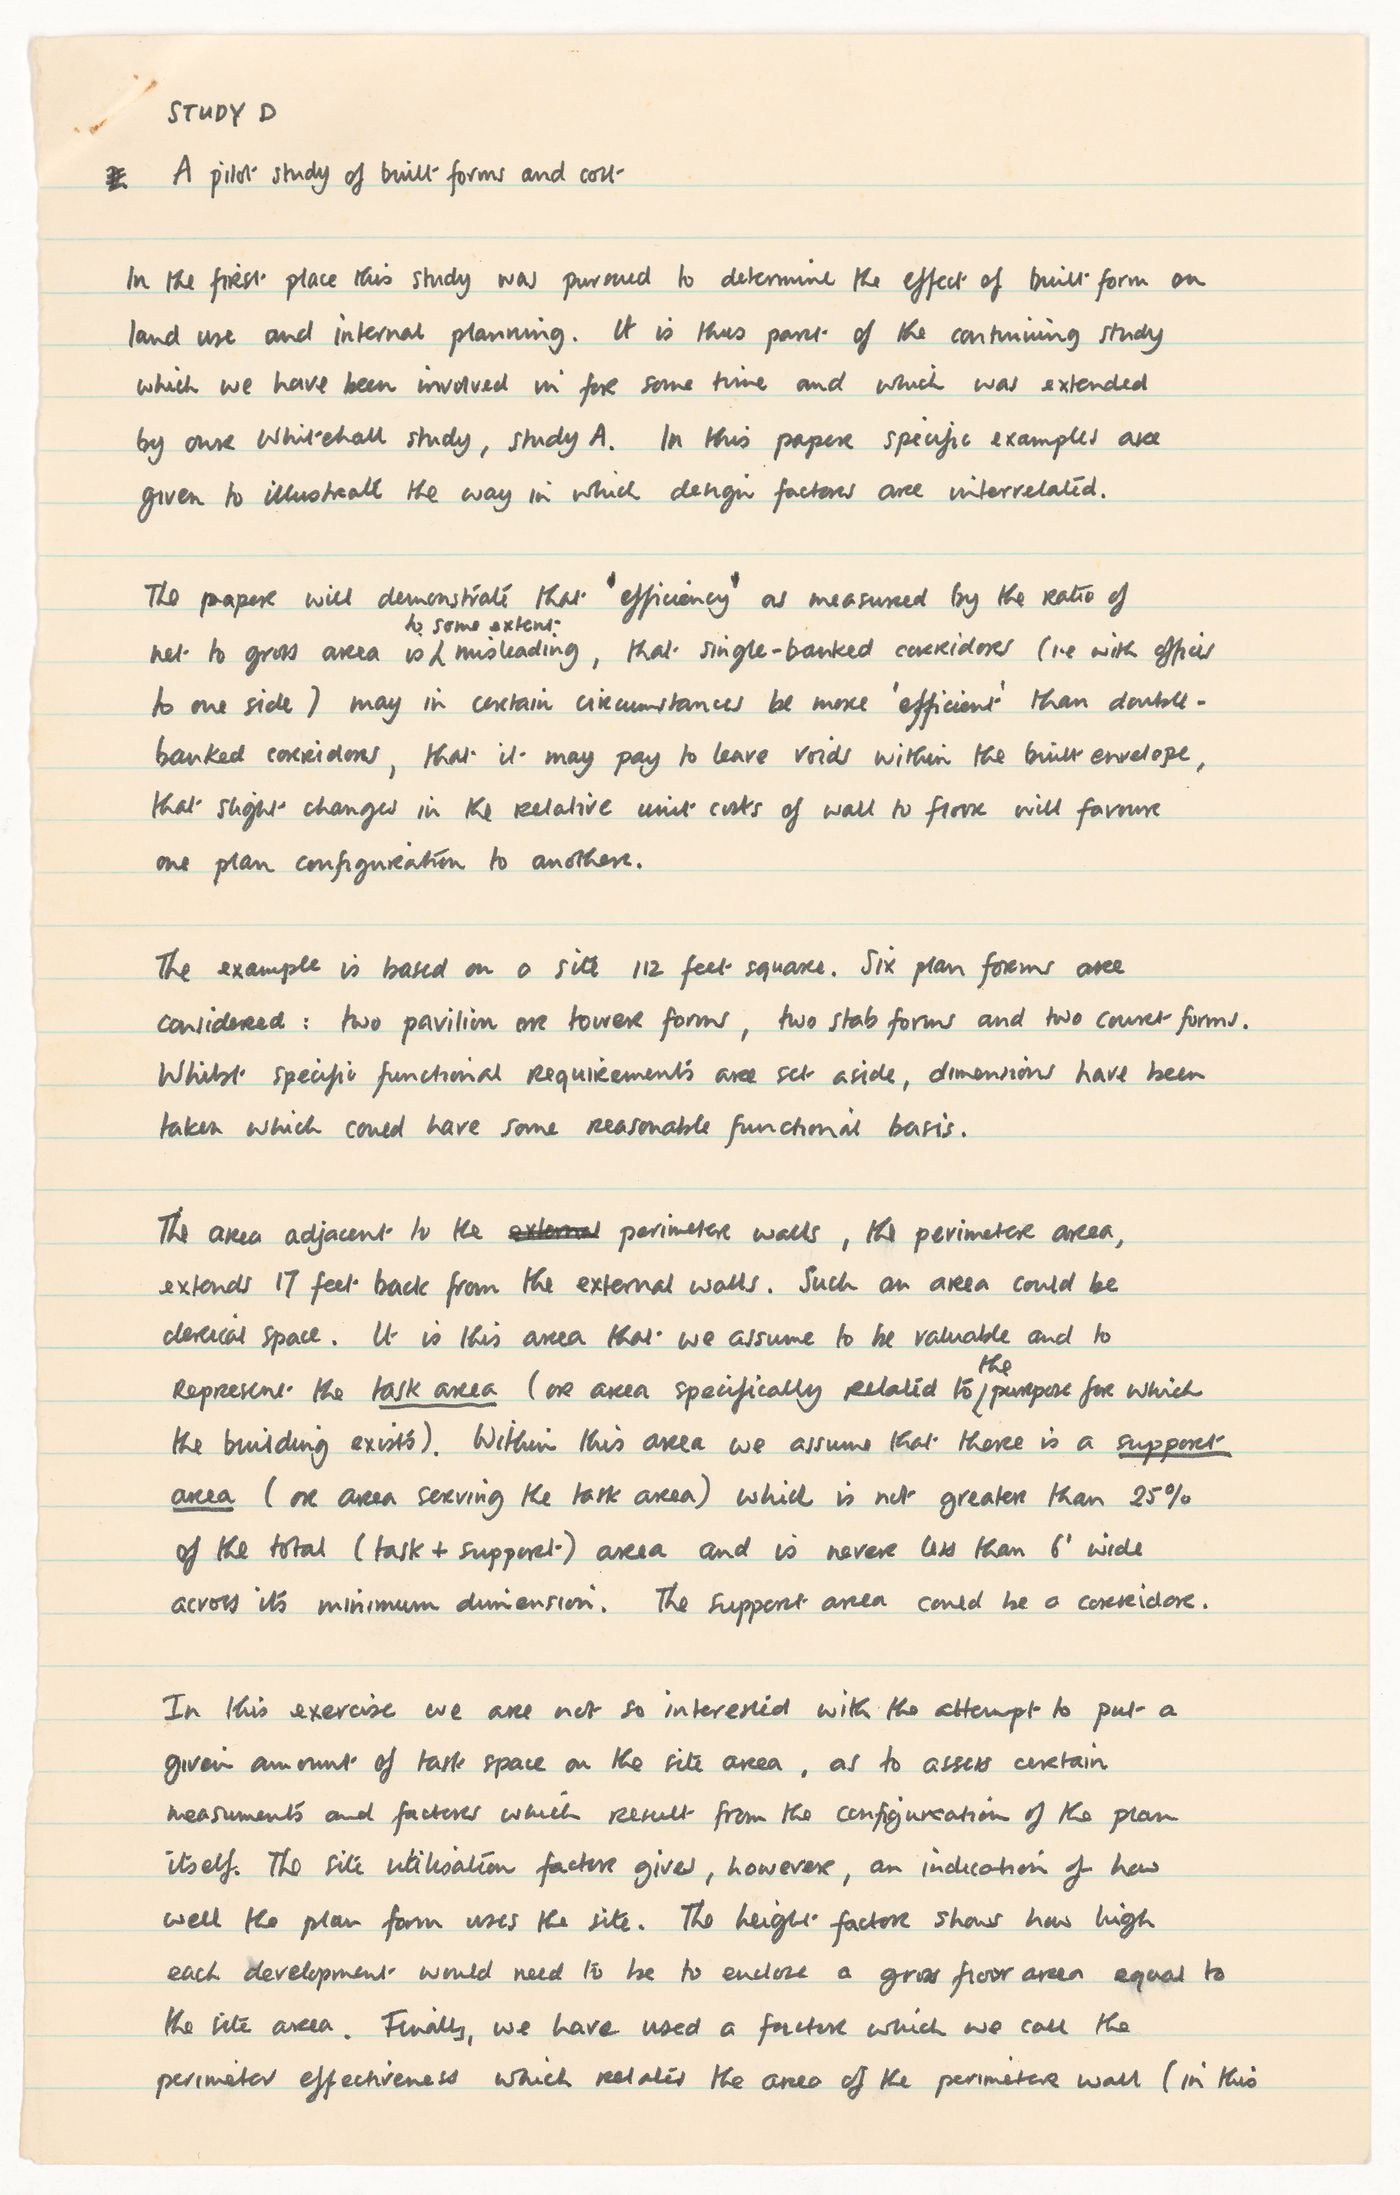 STUDY D
A pilot study of built forms and cost
In the first place this study was pursued to determine the effect of built form on
land use and internal planning. It is thus part of the continuing study
which we have been involved in for some time and which was extended
by our Whitehall study, study A. In this paper specific examples are
given to illustrate the way in which design factors are interrelated.
The paper will demonstrate that 'efficiency' as measured by the ratio of
to some extent
net to gross area is misleading, that single-banked corridors (i.e with offices
to one side) may in certain circumstances be more 'efficient' than double-
banked corridors, that it may pay to leave voids within the built envelope,
that slight changes in the relative unit costs of wall to floor will favour
one plan configuration to another.
The example is based on a site 112 feet square. Six plan forms are
considered : two pavilion or tower forms, two slab forms and two court forms.
Whilst specific functional requirements are set aside, dimensions have been
taken which could have some reasonable functional basis.
The area adjacent to the external perimeter walls, the perimeter area,
extends 17 feet back from the external walls. Such an area could be
clerical space. It is this area that we assume to be valuable and to
the
represent the task area (or area specifically related to purpose for which
the building exists). Within this area we assume that there is a support
area (or area serving the task area) which is not greater than 25%
of the total (task + support) area and is never less than 6' wide
across its minimum dimension. The support area could be a corridor.
In this exercise we are not so interested with the attempt to put a
given amount of task space on the site area, as to assess certain
measuments and factors which result from the configuration of the plan
itself. The site utilisation factor gives, however, an indication of how
well the plan form uses the site. The height factor shows how high
each development would need to be to enclose a gross floor area equal to
the site area. Finally, we have used a factor which we call the
perimeter effectiveness which relates the area of the perimeter wall (in this